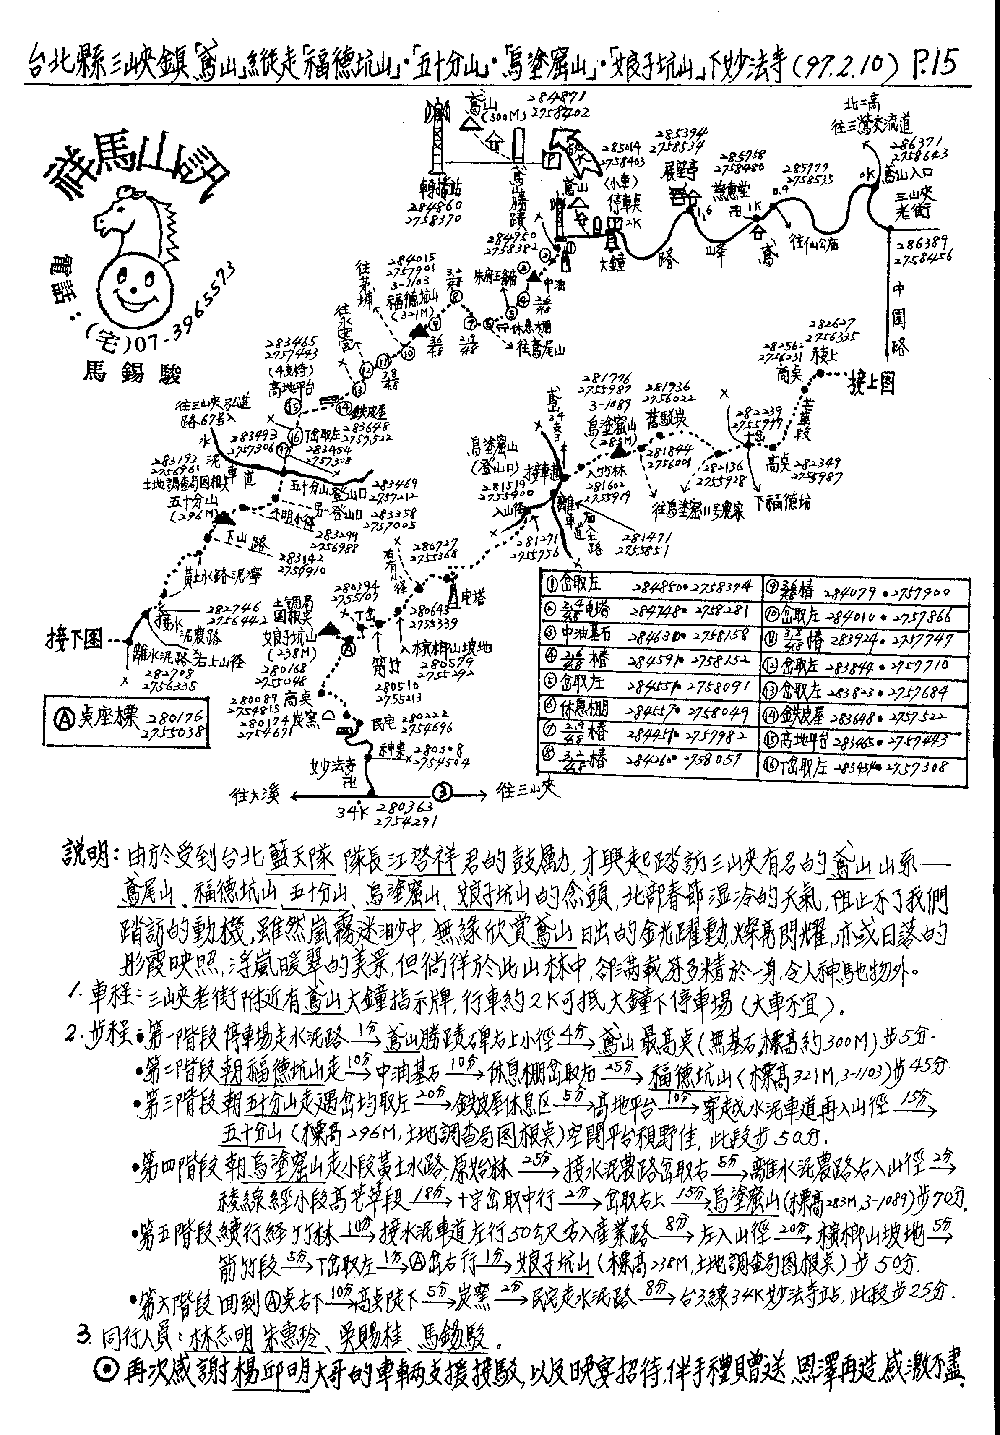 台北縣三峽鎮「鳶山」縱走「福德坑山」·「五十分山」·「烏塗窟山」·「娘子坑山」下妙法寺(97.2.10) P.15
祥馬山訊
電話:(宅)07-3965573
馬錫駿
鳶山
(300M)
284871
2758402
北二高
往三鶯交流道
286371
2758643
鳶山入口
三峽老街
286389
2758456
中園路
轉播站
284860
2758370
鳶山勝蹟
284950
2758382
285014
2758403
(小車)
停車場
2K
大鐘
285394
2758534
展望亭
285758
2758480
慈惠堂
285979
2758535
往仙公廟
鳶峰路
中油
休息棚
往鳶尾山
284015
2757901
3-1103
福德坑山
(321M)
283465
2757443
高地平台
鐵皮屋
283648
2757522
T岔取左
283454
2757308
283493
2757306
水泥車道
283193
2756961
土地調查局圖根點
五十分山
(296M)
五十分山登山口
283469
2757212
另一登山口
283258
2757005
283299
2756988
下山路
283142
2756910
黃土水路泥濘
282746
2756442
接水泥農路
離水泥路右上山徑
282708
2756338
接下圖
Ⓐ點座標 280176
2755038
282627
2756325
稜上
282562
2756231
高點
接上圖
芒草段
282239
2755997
十岔
高點 282349
2755987
下福德坑
282136
2755928
往烏塗窟11号農家
281936
2756022
舊駁崁
281844
2756001
281776
2755987
3-1089
烏塗窟山
(283M)
竹林
281602
2755919
烏塗窟山
(登山口)
接車道
281519
2755900
入山徑
281271
2755756
離車道右入土路
281471
2755851
280727
2755368
電塔
280643
2755339
入檳榔山坡地
280579
2755292
箭竹
280510
2755213
T岔
280394
2755107
土調局圖根點
娘子坑山
(238M)
280168
2755048
高點
280089
2754815
炭窯
280174
2754691
民宅 280222
2754696
神桌 280308
2754504
妙法寺
34K 280363
2754291
往大溪
往三峽
①岔取左 284850·2758394
②電塔 284748·2758281
③中油基石 284638·2758158
④椿 284591·2758152
⑤岔取左 284551·2758091
⑥休息棚 284557·2758049
⑦椿 284451·2757982
⑧椿 284260·2758051
⑨椿 284079·2757909
⑩岔取左 284010·2757866
⑪椿 283924·2757747
⑫岔取左 283844·2757710
⑬岔取左 283823·2757684
⑭鐵皮屋 283648·2757522
⑮高地平台 283465·2757443
⑯T岔取左 283454·2757308
說明:由於受到台北藍天隊 隊長江啓祥君的鼓勵,才興起踏訪三峽有名的鳶山山系──
鳶尾山、福德坑山、五十分山、烏塗窟山、娘子坑山的念頭,北部春節濕冷的天氣,阻止不了我們
踏訪的動機,雖然嵐霧迷渺中,無緣欣賞鳶山日出的金光躍動,燦亮閃耀,亦或日落的
彤霞映照,浮嵐暖翠的美景,但徜徉於此山林中,卻滿載芬多精於一身,令人神馳物外。
1.車程:三峽老街附近有鳶山大鐘指示牌,行車約2K可抵大鐘下停車場(大車不宜)。
2.步程·第一階段停車場走水泥路 1分→鳶山勝蹟碑右上小徑 4分→鳶山最高點(無基石,標高約300M)步5分.
·第二階段朝福德坑山走 10分→中油基石 10分→休息棚岔取右 25分→福德坑山(標高321M,3-1103)步45分.
·第三階段朝五十分山走遇岔均取左 20分→鐵皮屋休息區 5分→高地平台 10分→穿越水泥車道再入山徑 15分→
五十分山(標高296M,土地調查局圖根點)空間平台視野佳,此段步50分.
·第四階段朝烏塗窟山走小段黃土水路,原始林 25分→接水泥農路岔取右 5分→離水泥農路右入山徑 2分→
稜線經小段高芒草段 18分→十字岔取中行 2分→岔取右上 15分→烏塗窟山(標高283M,3-1089)步70分.
·第五階段續行經竹林 10分→接水泥車道左行50公尺右入產業路 8分→左入山徑 20分→檳榔山坡地 5分→
箭竹段 5分→T岔取左 1分→Ⓐ岔右行 1分→娘子坑山(標高238M,土地調查局圖根點)步50分.
·第六階段回到Ⓐ點右下 10分→高點陡下 5分→炭窯 2分→民宅走水泥路 8分→台3線34K妙法寺站,此段步25分.
3.同行人員:林志明、朱惠玲、吳賜桂、馬錫駿.
⊙再次感謝楊邱明大哥的車輛支援接駁,以及晚宴招待,伴手禮贈送,恩澤再造,感激不盡.